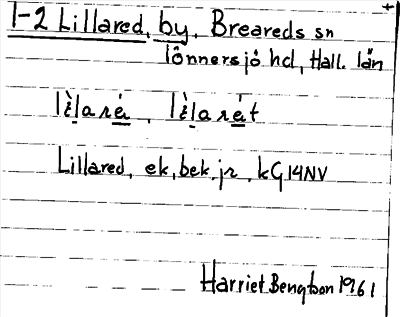 1-2 Lillared, by, Breareds sn
Tönnersjö hd, Hall. län
Lillared, ek, bek. jr. kG14NV
Harriet Bengtson 1961